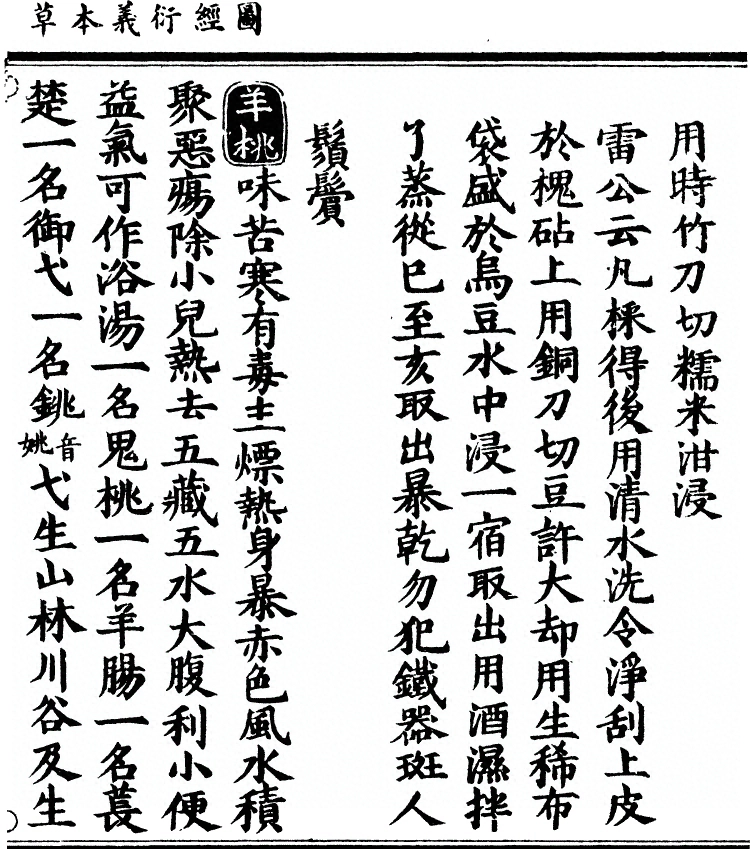 圖經衍義本草
用時竹刀切糯米泔浸
雷公云凡採得後用清水洗令淨刮上皮
於槐砧上用銅刀切豆許大却用生稀布
袋盛於烏豆水中浸一宿取出用酒濕拌
了蒸從巳至亥取出暴乾勿犯鐵器斑人
鬚鬢
羊桃味苦寒有毒主熛熱身暴赤色風水積
聚惡瘍除小兒熱去五藏五水大腹利小便
益氣可作浴湯一名鬼桃一名羊腸一名萇
楚一名御弋一名銚音姚弋生山林川谷及生